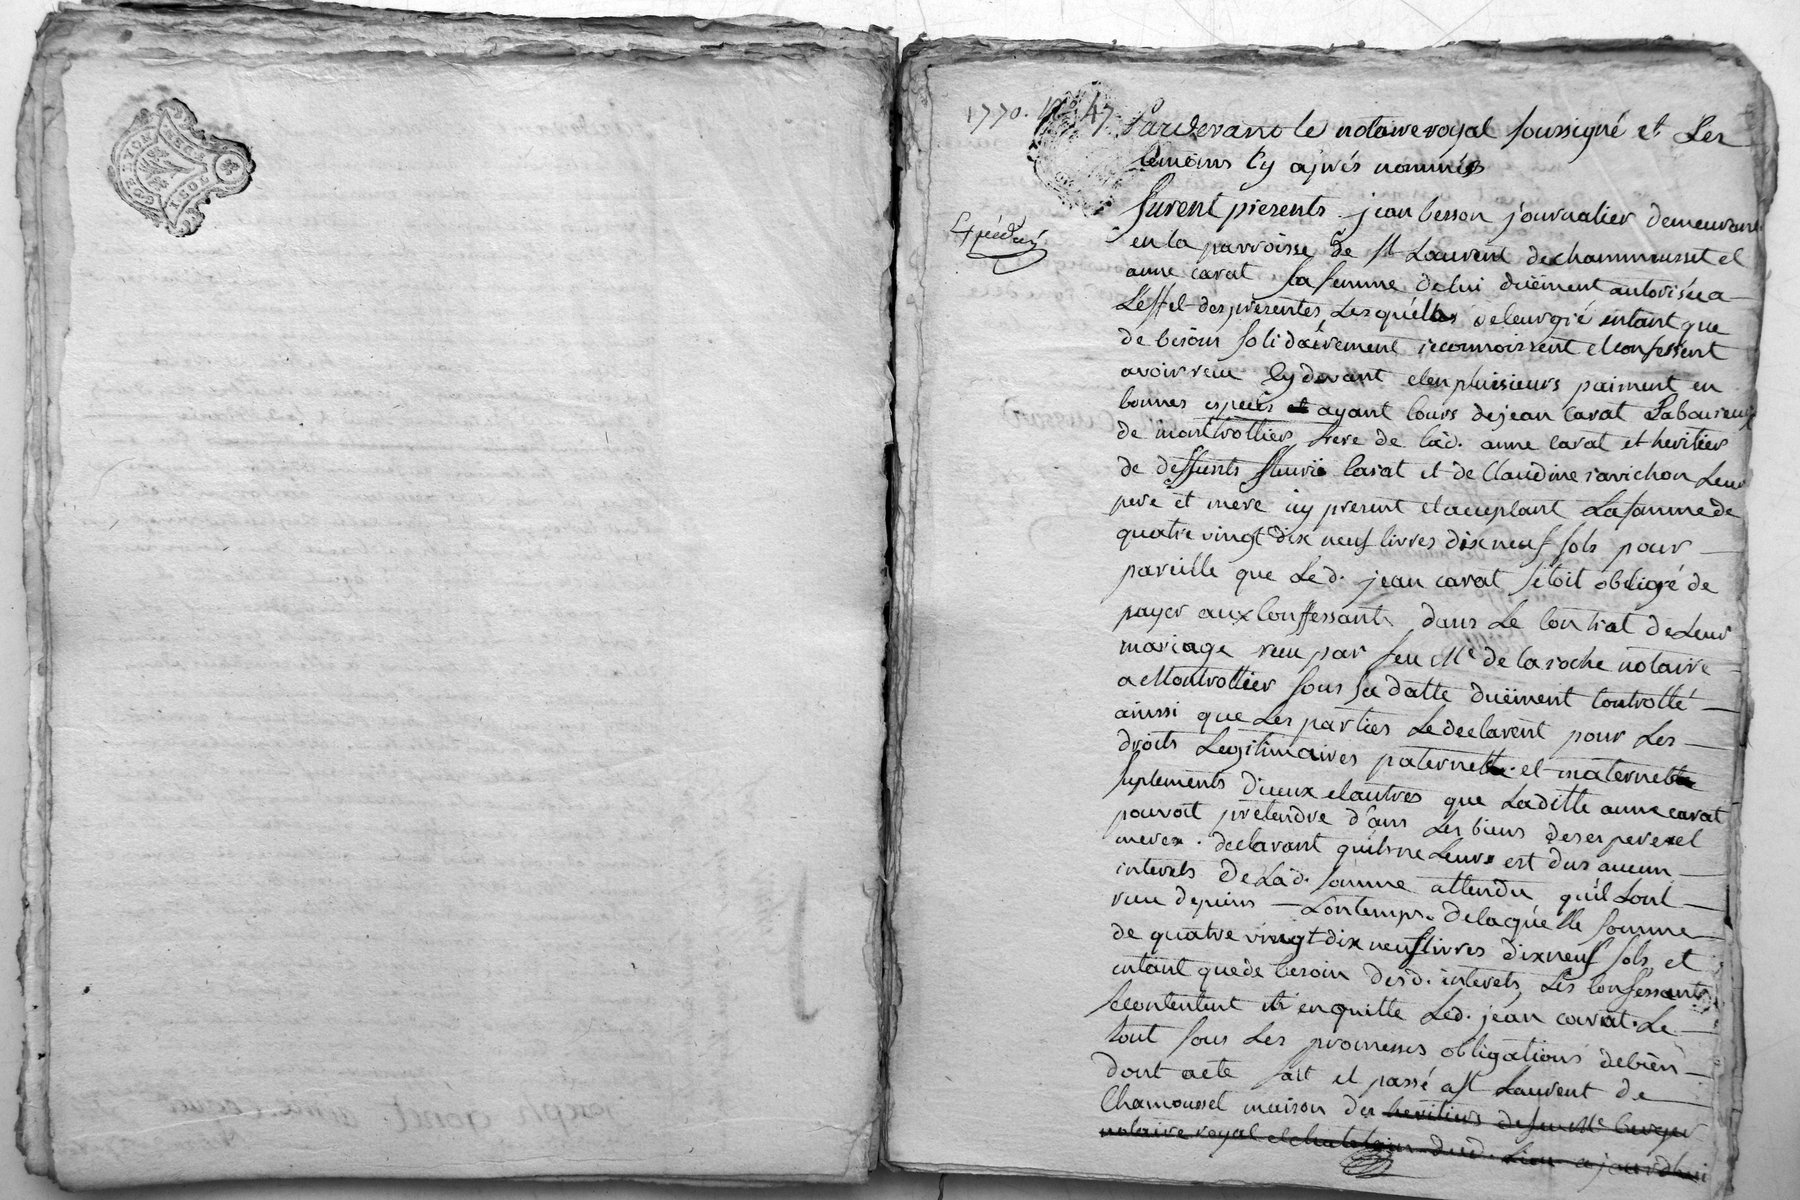 1770. N° 47
Expédié
Pardevant le notaire royal soussigné et Les
temoins Cy aprés nommés
furent presents jean besson journalier demeurant
en la parroisse de St Laurent de chammousset et
anne carat sa femme de lui duëment autorisée a
L'effet des presentes, Lesquells de leur gré entant que
de besoin solidairement reconnoissent et confessent
avoir reçu Cy devant et en plusieurs paiment en
bonnes especes et ayant cours de jean carat Laboureur
de montrottier, frere de lad. anne carat et heritier
de deffunts fleurie carat et de Claudine ravichon Leur
pere et mere icy present et acceptant La somme de
quatre vingt dix neuf livres dix neuf sols pour
pareille que Led. jean carat setoit obligé de
payer aux Confessants dans Le Contrat de Leur
mariage reçu par feu Me de la roche notaire
a Montrottier sous sa datte duëment Controllé
ainssi que Les parties Le declarent pour Les
droits Legitimaires paternels et maternels
suplements diceux et autres que Laditte anne carat
pouvoit prétendre dans Les biens de ses pere et
mere. declarant quils ne Leurs est dus aucun
interets de Lad. somme attendu quil Lont
reçu depuis Lontemps. de laquelle somme
de quatre vingt dix neuf livres dix neuf sols et
entant que de besoin desd. interets, Les Confessants
se contentent et en quitte Led. jean carat. Le
tout sous Les promesses obligations de bien
dont acte fait et passé a St Laurent de
Chamousset maison des heritiers de feu Me berger
notaire royal et chatelain dud. Lieu ajourdhui